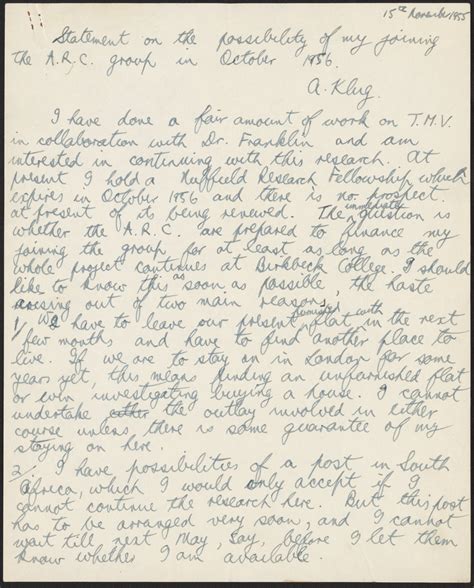 15th November 1955
Statement on the possibility of my joining
the A.R.C. group in October 1956.
A. Klug.
I have done a fair amount of work on T.M.V.
in collaboration with Dr. Franklin and am
interested in continuing with this research. At
present I hold a Nuffield Research Fellowship which
expires in October 1956 and there is no prospect
at present of its being renewed. The immediate question is
whether the A.R.C. are prepared to finance my
joining the group for at least as long as the
whole project continues at Birkbeck College. I should
like to know this as soon as possible, the haste
arising out of two main reasons,
1/ We have to leave our present flat with in the next
few months and have to find another place to
live. If we are to stay on in London for some
years yet, this means finding an unfurnished flat
or even investigating buying a house. I cannot
undertake either the outlay involved in either
course unless there is some guarantee of my
staying on here.
2/ I have possibilities of a post in South
Africa, which I would only accept if I
cannot continue the research here. But this post
has to be arranged very soon, and I cannot
wait till next May, say, before I let them
know whether I am available.